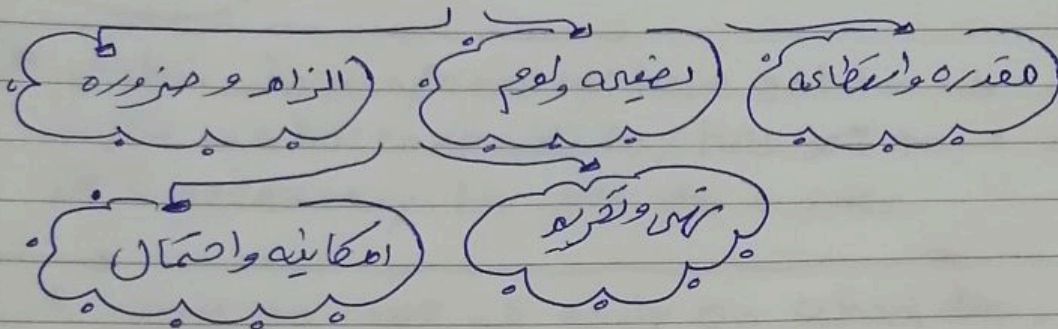 مقدره واستطاعه نصيحه ولوم الزام وضروره
نهى وتحريم امكانيه واحتمال